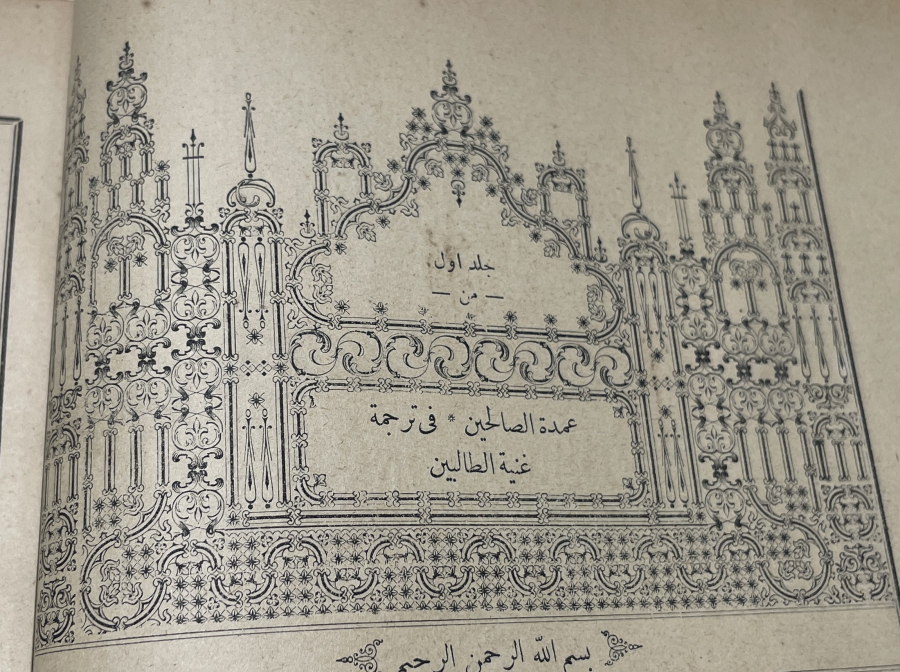 جلد اول
— من —
عمدة الصالحين * فى ترجمة
غنية الطالبين
بسم الله الرحمن الرحيم